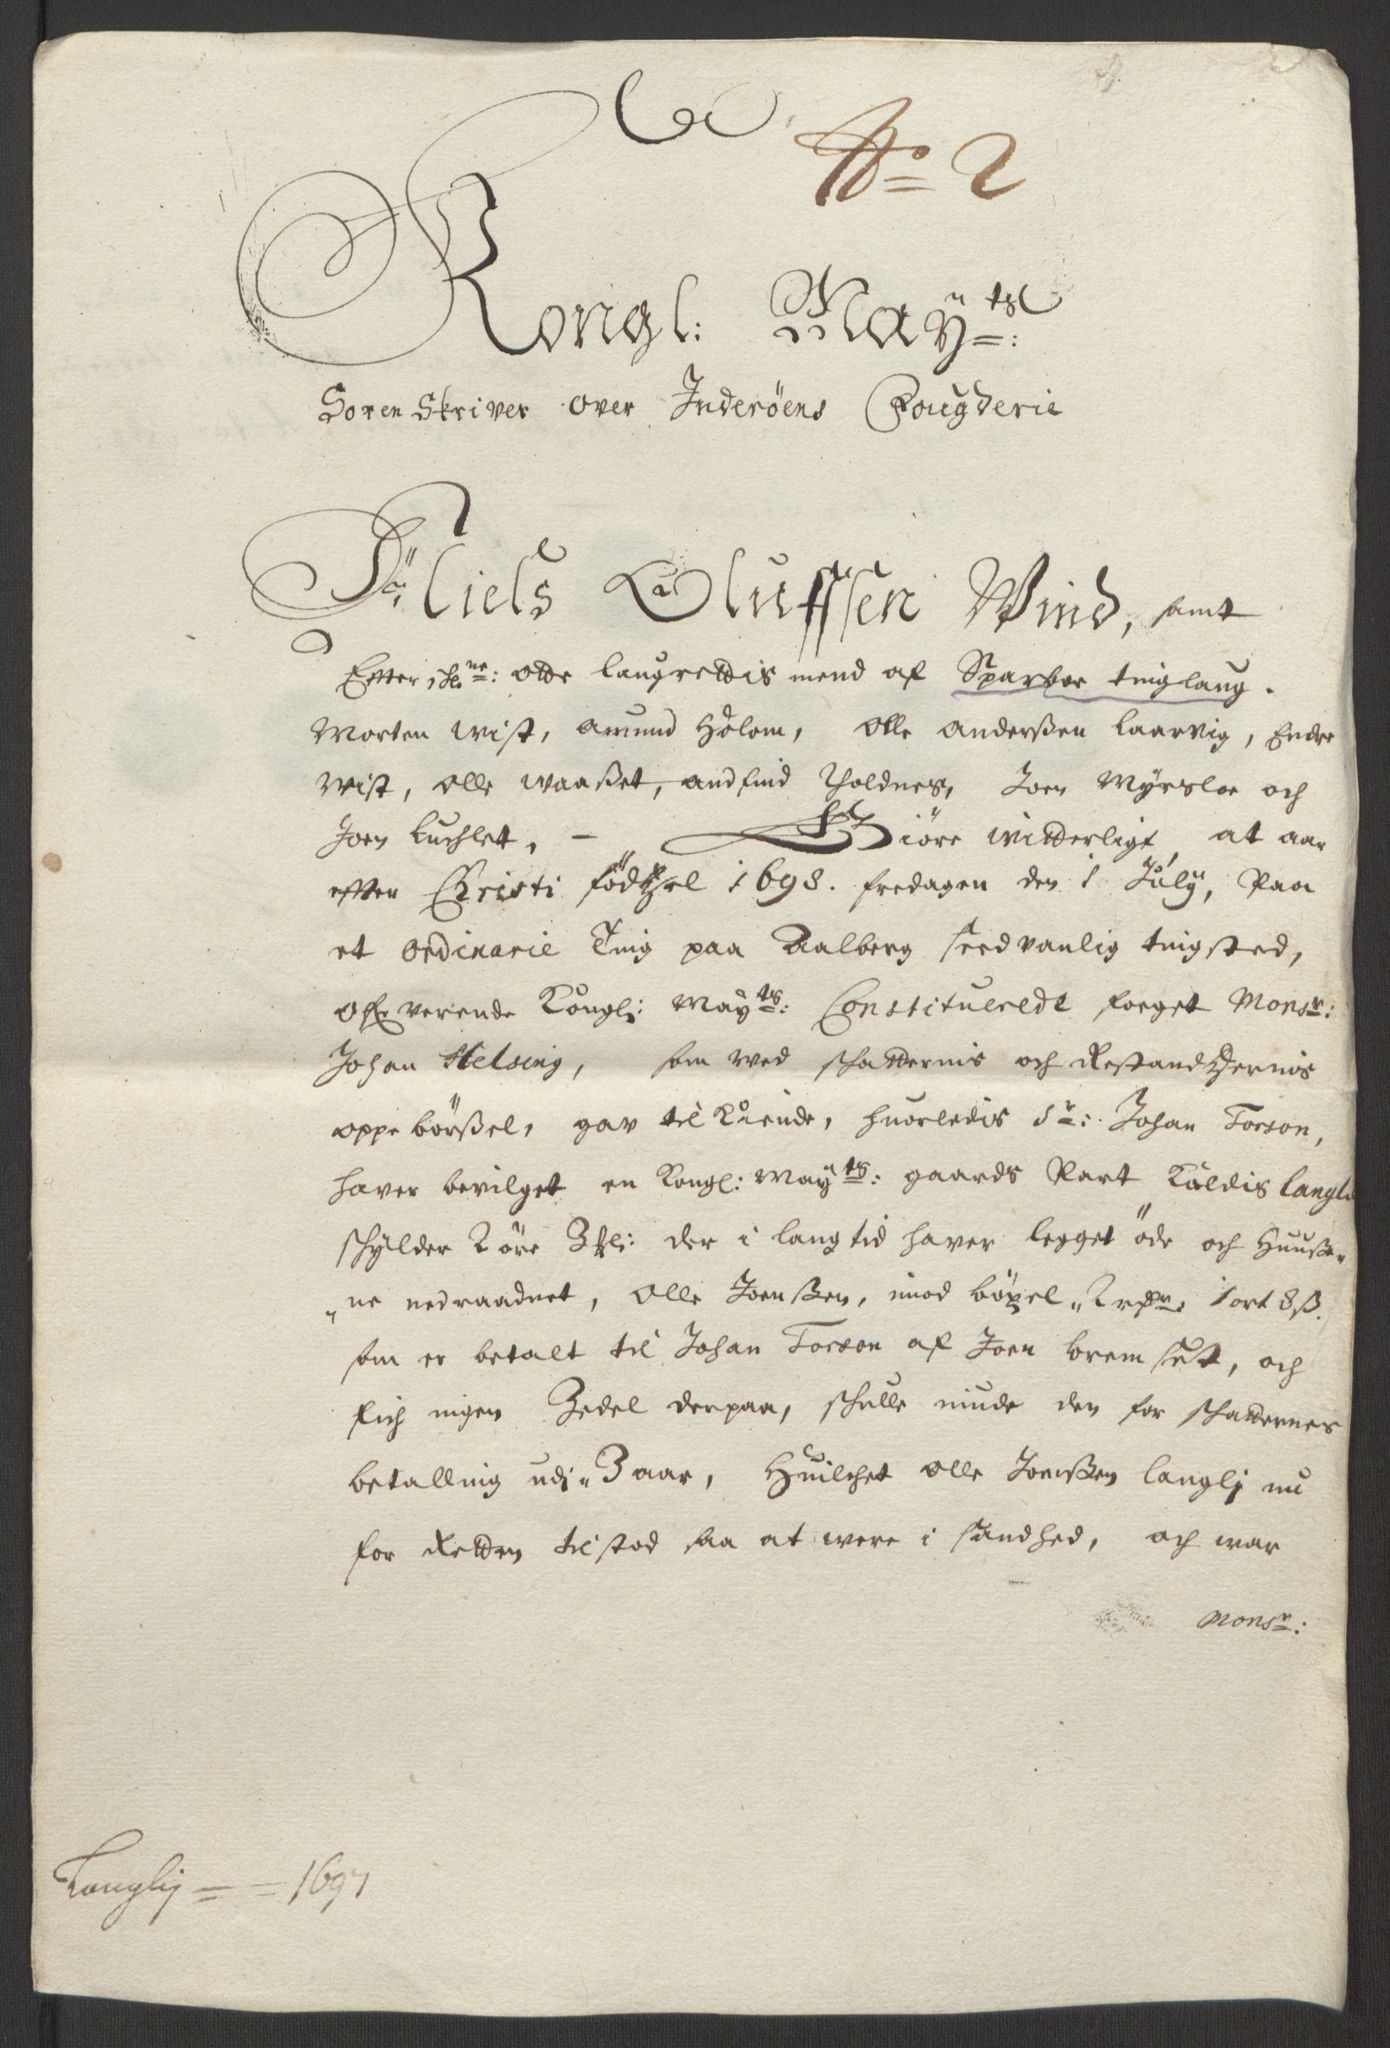 No 2
Kongl: Mayts:
Soren Skriver over Inderöens Fougderie
Niels Oluffsen Wind, samt
Effter schne: otte laugrettis mend af Sparboe tinglaug.
Morten Wist, Amund Hólom, Olle Anderßen Laarvig, Endre
Wist, Olle Waaßet, Andfind Tholdnes, Joen Myrsloe och
Joen Luchlet, – Giöre witterligt, at aar
effter Christi födtzel 1698. fredagen den 1 July, Paa
et ordinarie Ting paa Aalberg seedvanlig tingsted,
offververende Kongl: Mayts: Constituerede foeget Monsr:
Johan Helsing, som ved schatternis och Restandtzernis
oppebörßel, gav tilkiende, huorledis Sr: Johan Torson,
haver bevilget en Kongl: Mayts: gaards Part kaldis Langli
schylder 2 öre 3 ħl: der i lang tid haver legget öde och Huuße-
"ne nedraadnet, Olle Joenßen, imod böxel "2 rdr 1 ort 8 ß.
som er betalt til Johan Torson af Joen bremset, och
fich ingen Zedel derpaa, schulle niude den for schatternes
betalling udi "3 aar, Huilchet Olle Joenßen Langlj nu
for Retten tilstod saa at were i sandhed, och war
Monsr:
Langlij = = 1697